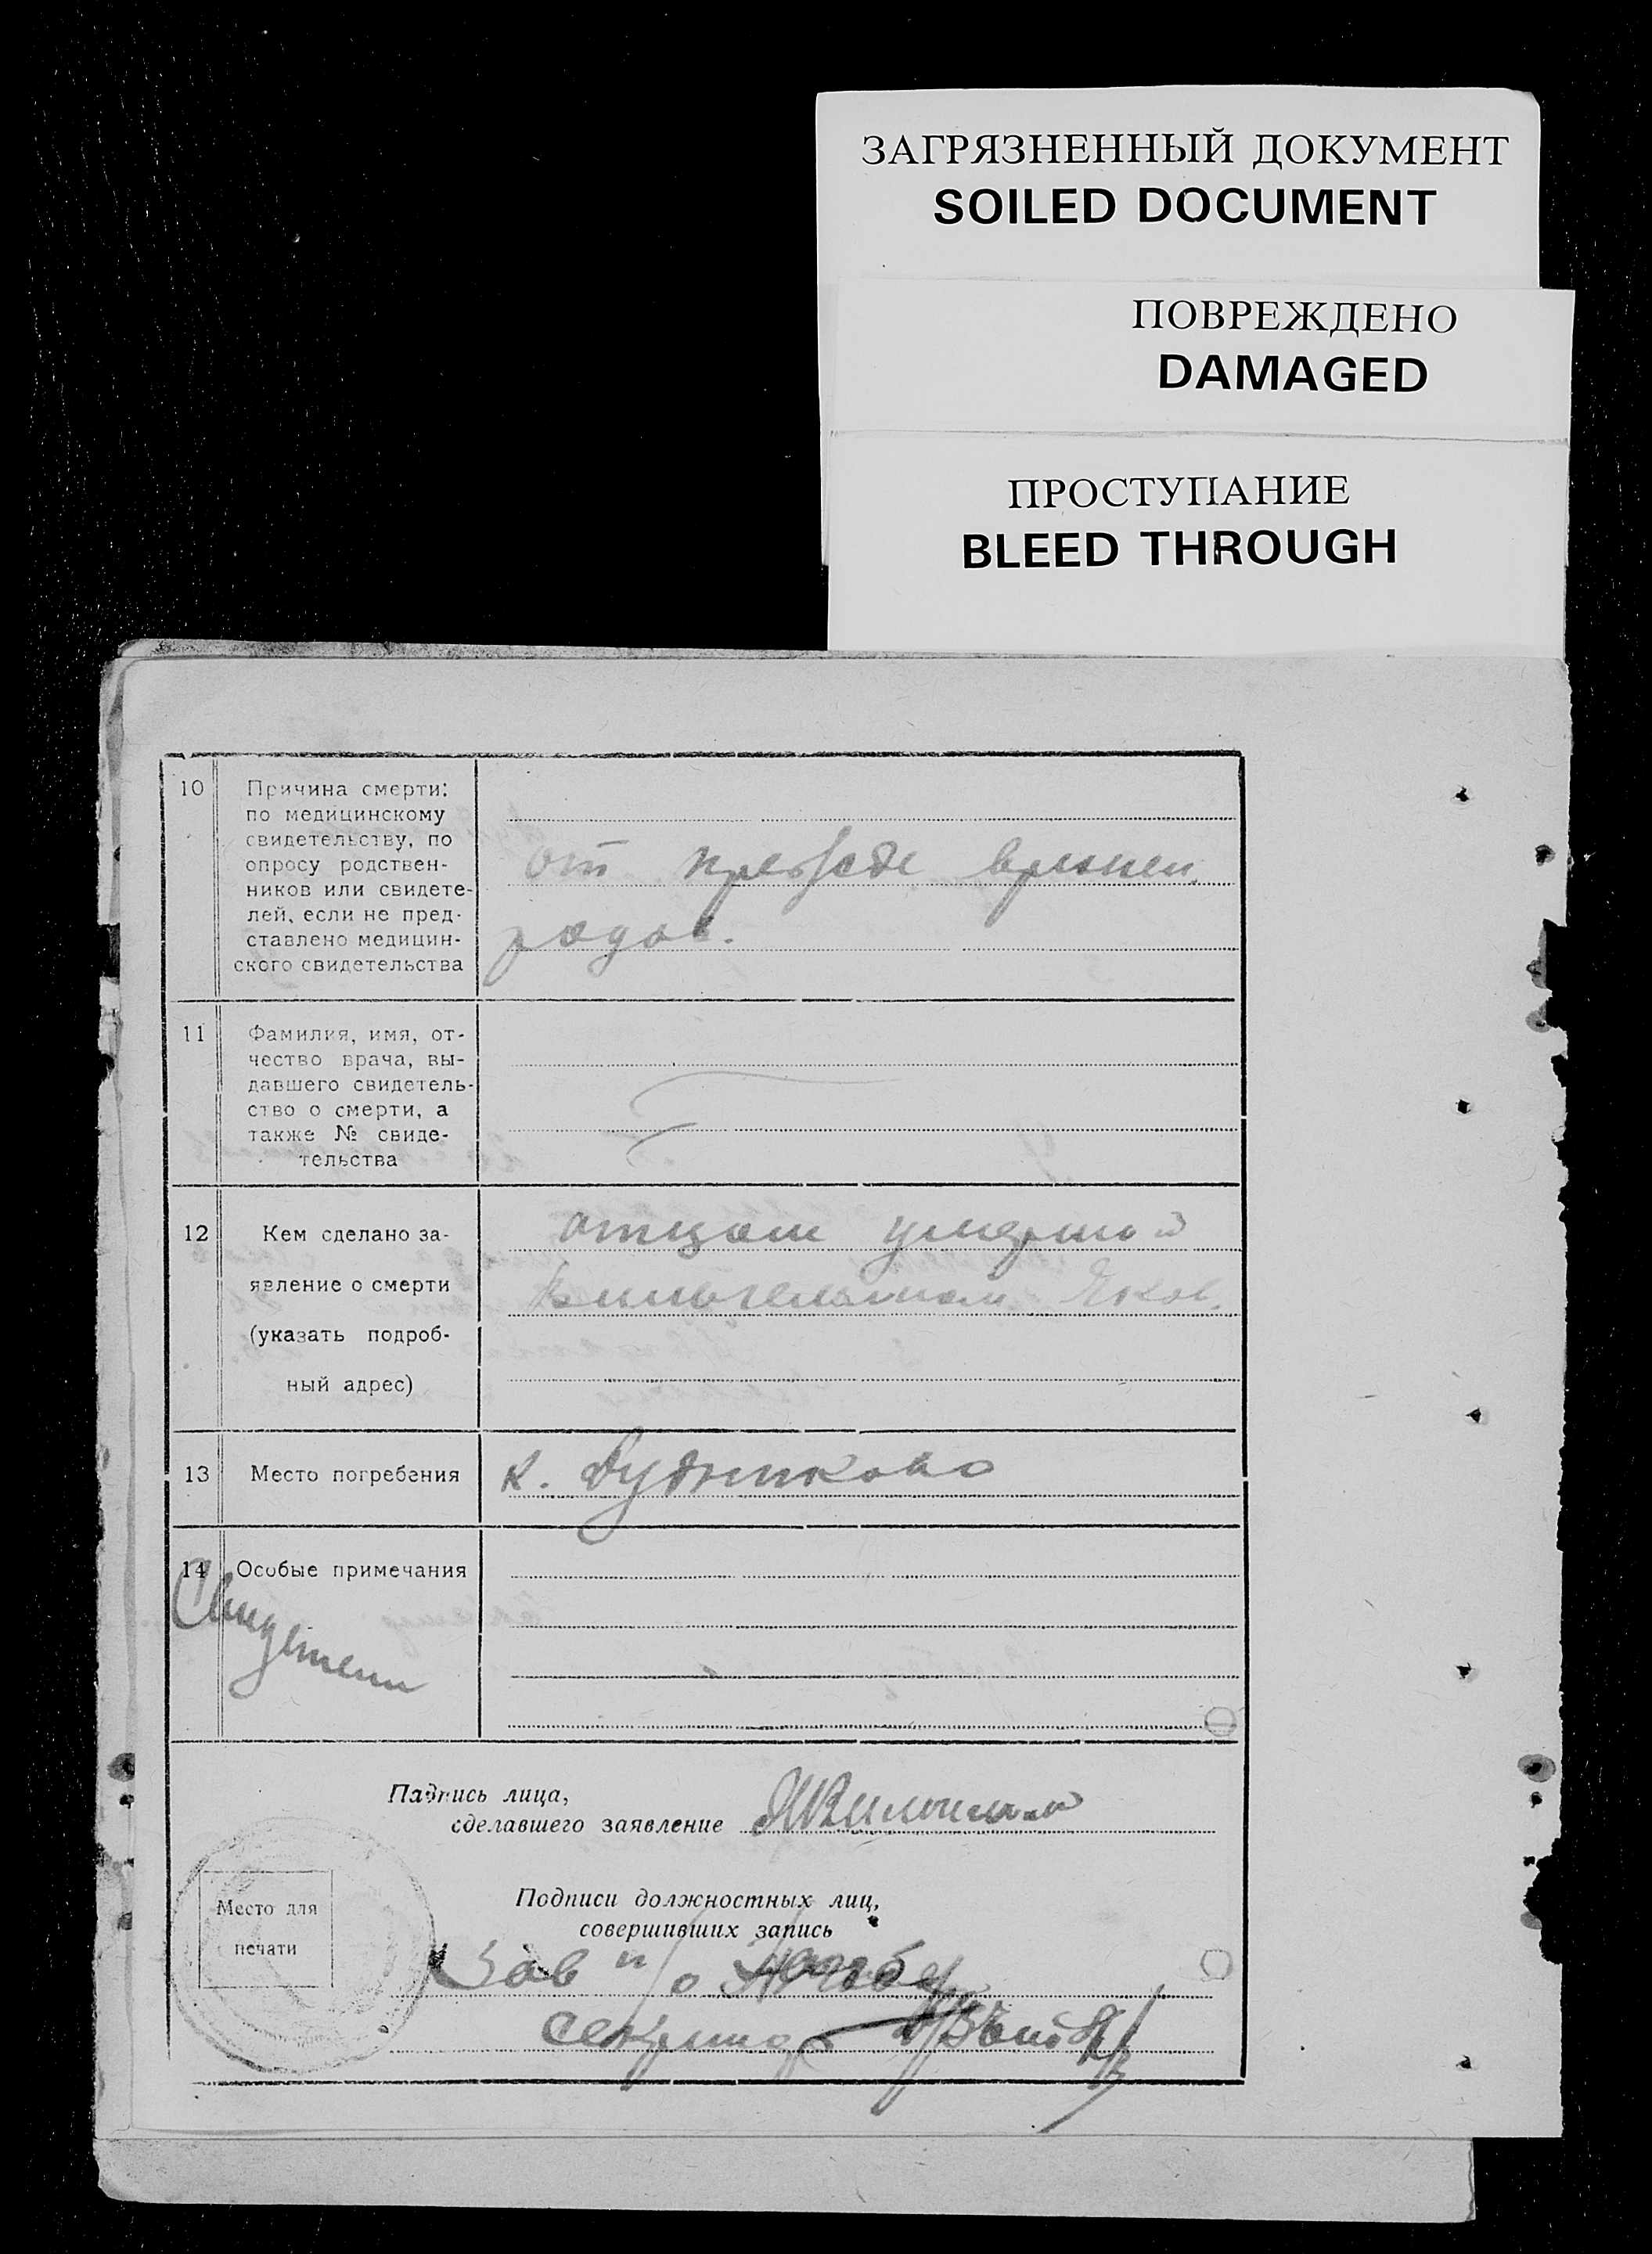 ЗАГРЯЗНЕННЫЙ ДОКУМЕНТ
SOILED DOCUMENT
ПОВРЕЖДЕНО
DAMAGED
ПРОСТУПАНИЕ
BLEED THROUGH
10
Причина смерти:
по медицинскому
свидетельству, по
опросу родствен-
ников или свидете-
лей, если не пред-
ставлено медицин-
ского свидетельства
от времен.
родов.
11
Фамилия, имя, от-
чество врача, вы-
давшего свидетель-
ство о смерти, а
также № свиде-
тельства
12
Кем сделано за-
явление о смерти
(указать подроб-
ный адрес)
отцом умершей
13
Место погребения
к.
14
Особые примечания
Подпись лица,
сделавшего заявление
Место для
печати
Подписи должностных лиц,
совершивших запись
Зав